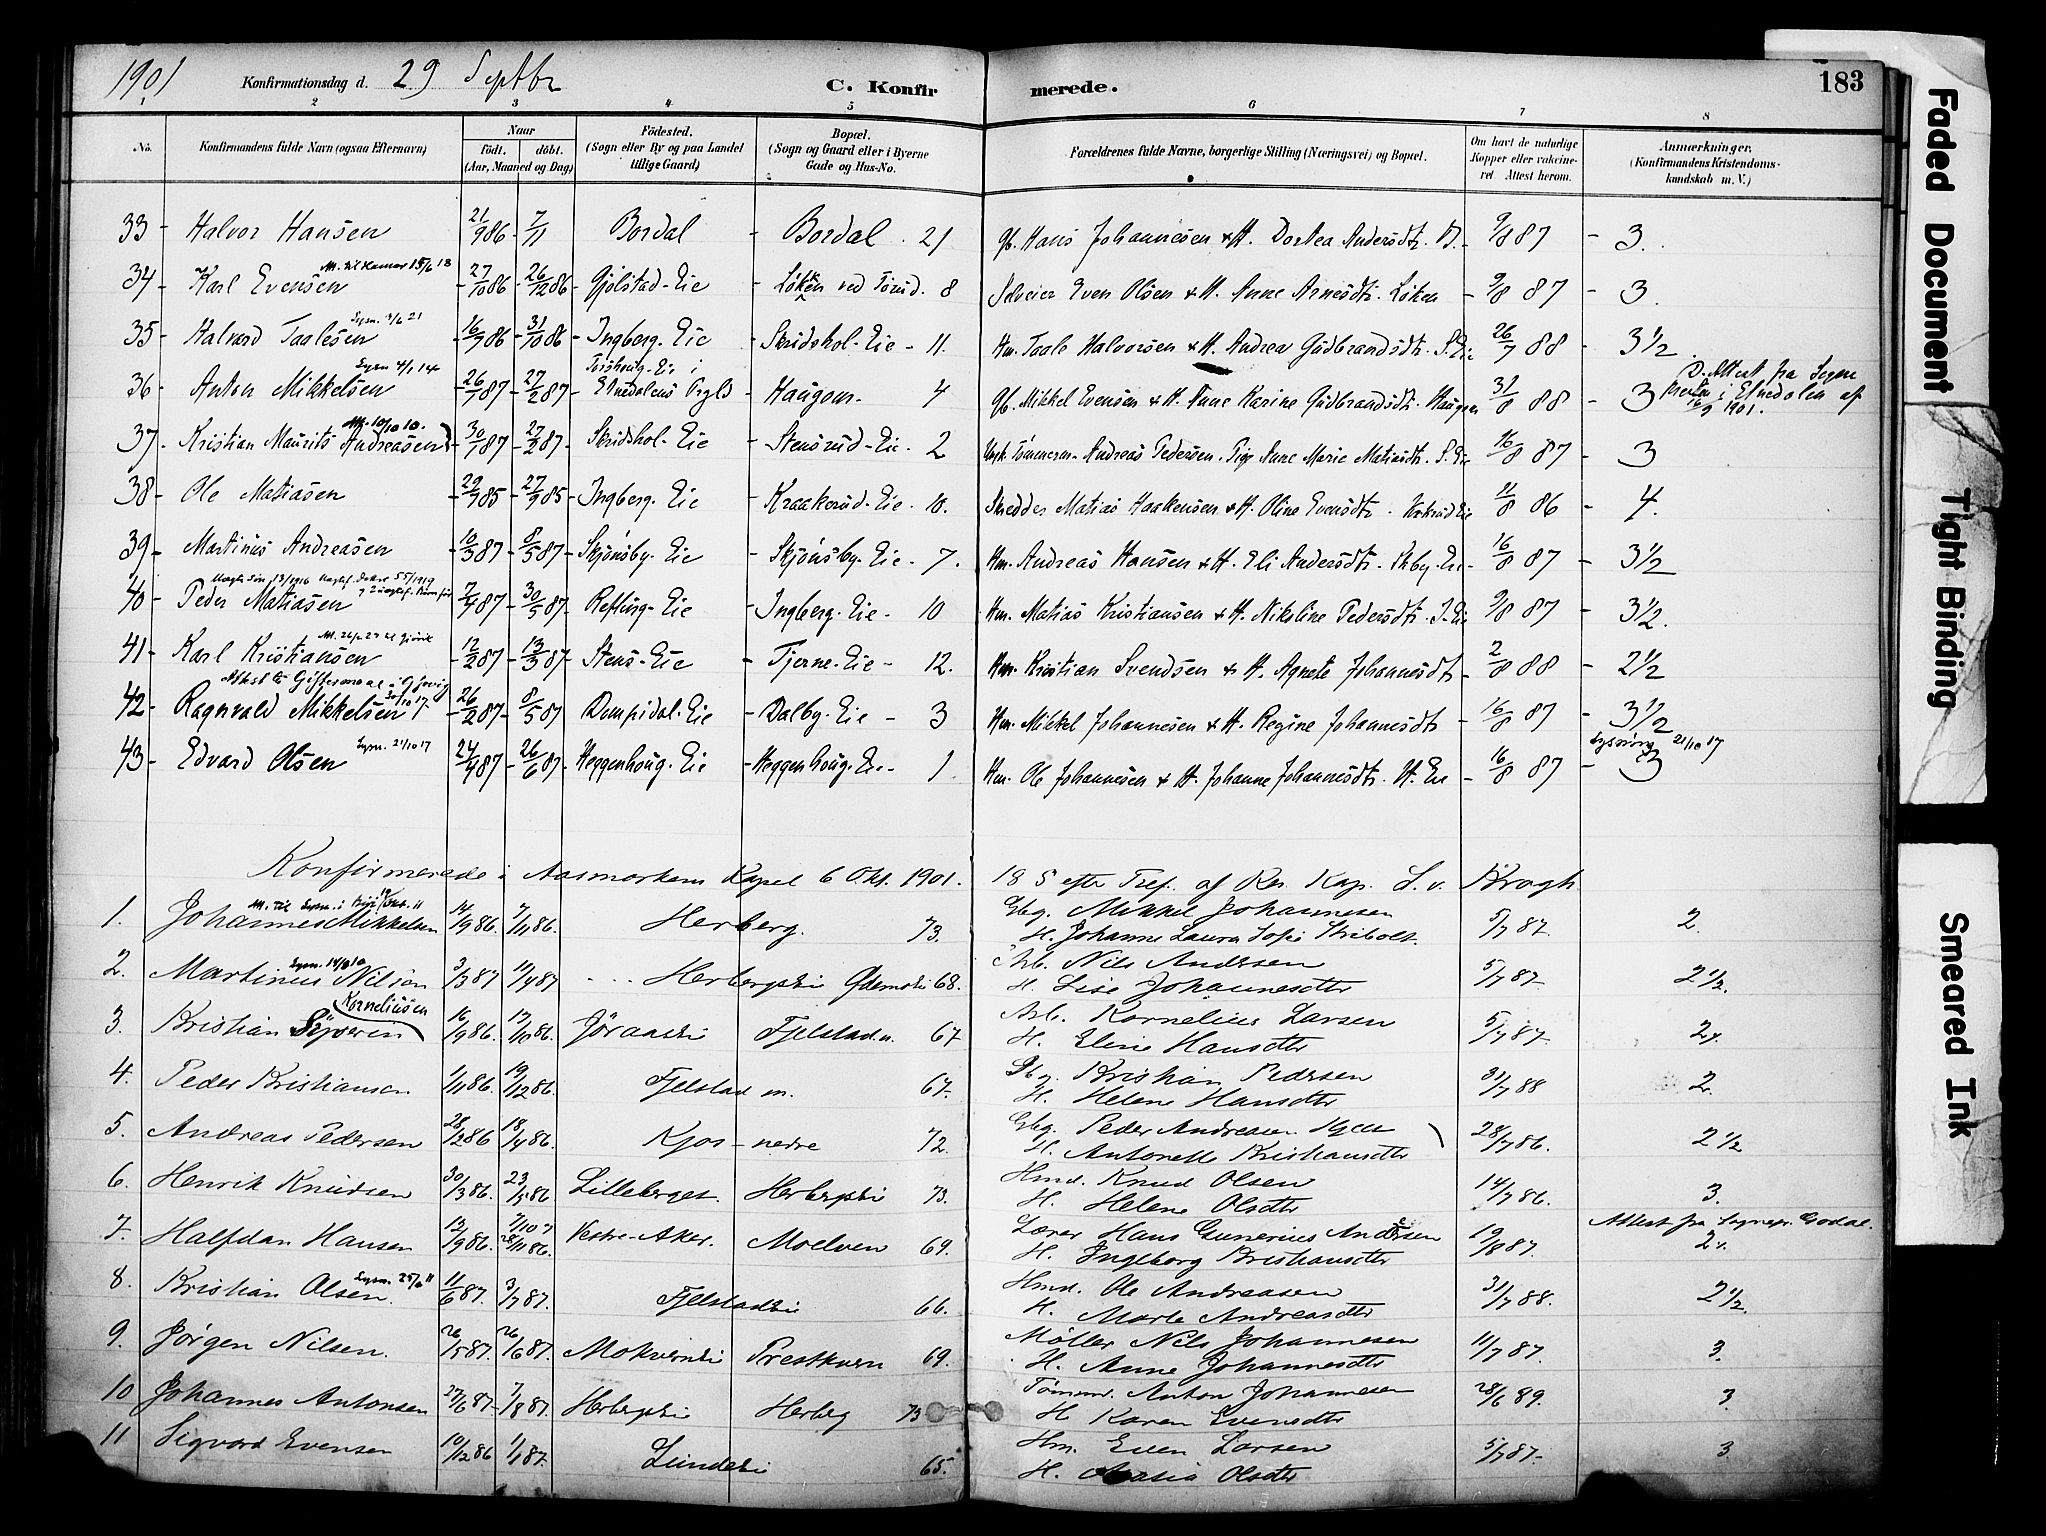 1901 Konfirmationsdag d. 29 Septbr C. Konfirmerede. 183
1 2 3 4 5 6 7 8
No. Konfirmandens fulde Navn (ogsaa Efternavn) Naar født. døbt. (Aar, Maaned og Dag) Födested. (Sogn eller By og paa Landet tillige Gaard) Bopæl. (Sogn og Gaard eller i Byerne Gade og Hus-No. Forældrenes fulde Navne, borgerlige Stilling (Næringsvei) og Bopæl. Om havt de naturlige Kopper eller vakcineret. Attest herom. Anmærkninger. (Konfirmandens Kristendomskundskab m. V.)
33 - Halvor Hansen 21/9 86 - 7/11 Bordal - Bordal . 21 Gb. Hans Johannesen & H. Dortea Andersdtr. B. - 9/8 87 - 3.
34 - Karl Evensen - 27/10 86 - 26/12 86 - Gjölstad-Eie - Löken ved 8 Selveier Even Olsen & H. Anne Arnesdtr. Löken - 9/8 87 - 3.
35 - Halvard Taalesen - 16/9 86 - 31/10 86 - Ingberg-Eie - Skridshol-Eie - 11. Hm. Taale Halvorsen & H. Andrea Gudbrandsdtr. S. Eie 26/7 88 - 3 1/2
36 - Anton Mikkelsen - 26/1 87 - 27/2 87 - Etnedalens Prgld - Haugom - 4 Gb. Mikkel Evensen & H. Anne Karine Gudbrandsdtr. Haugom 31/8 88 - 3 D. Attest fra Sogne presten i Etnedalen af 16/9 1901.
Att. 10/10 10.
37 - Kristian Maurits Andreasen - 30/1 87 - 27/2 87 - Skridshol-Eie - Stensrud-Eie - 2 Ugk. Tömmerm. Andreas Pedersen. Pige Anne Marie Matiasdtr. S. Eie 16/8 87 - 3
38 - Ole Matiasen - 29/7 85 - 27/9 85 - Ingberg-Eie - Kraakerud-Eie - 10. Skredder Matias Haakensen & H. Oline Evensdtr. 11/8 86 - 4.
39 - Martinus Andreasen - 10/3 87 - 8/5 87 - Skjönsby-Eie - Skjönsby-Eie - 7. Hm. Andreas Hansen & H. Eli Andersdtr. Skby-Eie - 16/8 87 - 3 1/2
40 - Peder Matiasen - 7/4 87 - 30/5 87 - Refling-Eie - Ingberg-Eie - 10 Hm. Matias Kristiansen & H. Nikoline Pedersdtr. I-Eie 9/8 87 - 3 1/2.
41 - Karl Kristiansen - 12/2 87 - 13/3 87 - Stens-Eie - Tjerne-Eie - 12. Hm. Kristian Svendsen & H. Agnete Johannesdtr - 2/8 88 - 2 1/2
42 - Ragnvald Mikkelsen - 26/2 87 - 8/5 87 - Dompidal-Eie - Dalby-Eie - 3 Hm. Mikkel Johannesen & H. Regine Johannesdtr - 16/8 87 - 3 1/2
43 - Edvard Olsen 24/4 87 - 26/6 87 - Heggenhoug-Eie - Heggenhoug-Eie - 1 Hm. Ole Johannesen & H. Johanne Johannesdtr. H. Eie - 16/8 87 - 3
Konfirmerede i Aasmarkens Kapel 6 Okt. 1901. 18 S efter Tref. af Res. Kap. L. v. Krogh
1. Johannes Mikkelsen 14/9 86. 7/11 86. Herberg. 73. Gbg. Mikkel Johannesen 5/7 87. 2.
H. Johanne Laura Sofie
2. Martinus Nilsen 3/3 87 11/4 87 Herbergseie 68. Arb. Nils Andersen 5/7 87 - 2 1/2.
H. Lise Johannesdtr
3. Kristian Syverin Korneliusen 16/9 86. 17/10 86. Fjelstad n. 67. Arb. Kornelius Larsen 5/7 87. 2.
H. Eline Hansdtr
4. Peder Kristiansen 1/11 86. 19/12 86. Fjelstad n. 67. Gbg. Kristian Pedersen 31/7 88 2.
H. Helene Hansdtr
5. Andreas Pedersen 28/2 86 18/4 86. Kjos - nedre 72. Gbg. Peder Andreasen Kjos 28/7 86. 2 1/2
H. Antonette Kristiansdtr
6. Henrik Knudsen 30/3 86. 23/5 86 Lilleberget. Herbergseie 73. Hmd. Knud Olsen 14/7 86. 3.
H. Helene Olsdtr
7. Halfdan Hansen 13/9 86. 28/11 86. Vestre-Aker. Moelven 69. Lærer Hans Gunerius Andersen 19/8 87. Attest fra Sognepr. Godal. 2.
H. Ingeborg Kristiansdtr
8. Kristian Olsen. 11/6 87. 3/7 87. Fjelstadeie 66. Hmd. Ole Andreasen 31/7 88. 2 1/2.
H. Marte Andreasdtr
9. Jörgen Nilsen. 26/5 87. 26/6 87. Mokverneie Prestkvern 69. Möller Nils Johannesen 11/7 87. 3.
H. Anne Johannesdtr
10 Johannes Antonsen 27/6 87. 7/8 87. Herbergseie Herberg 73 Tömmd. Anton Johannesen 28/6 89. 3
H Karen Evensdtr
11 Sigvard Evensen 10/12 86 1/1 87. Lundeeie 65. Hm. Even Larsen 5/7 87. 3.
H. Olsdtr
Faded Document
Tight Binding
Smeared Ink